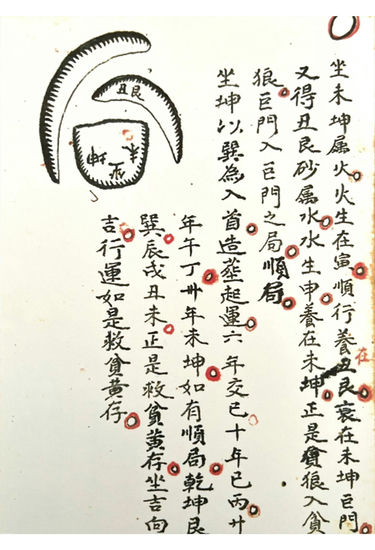 坐未坤属火火生在寅順行養丑艮衰在未坤巨門
又得丑艮砂属水水生申養在未坤正是貪狼入貪
狼巨門入巨門之局順局
坐坤以巽為入首造葬起運六年交巳十年巳丙廿
年午丁卅年未坤如有順局乾坤艮
巽辰戌丑未正是救貧黃存坐吉向
吉行運如是救貧黃存
在
丑艮
坐坤未